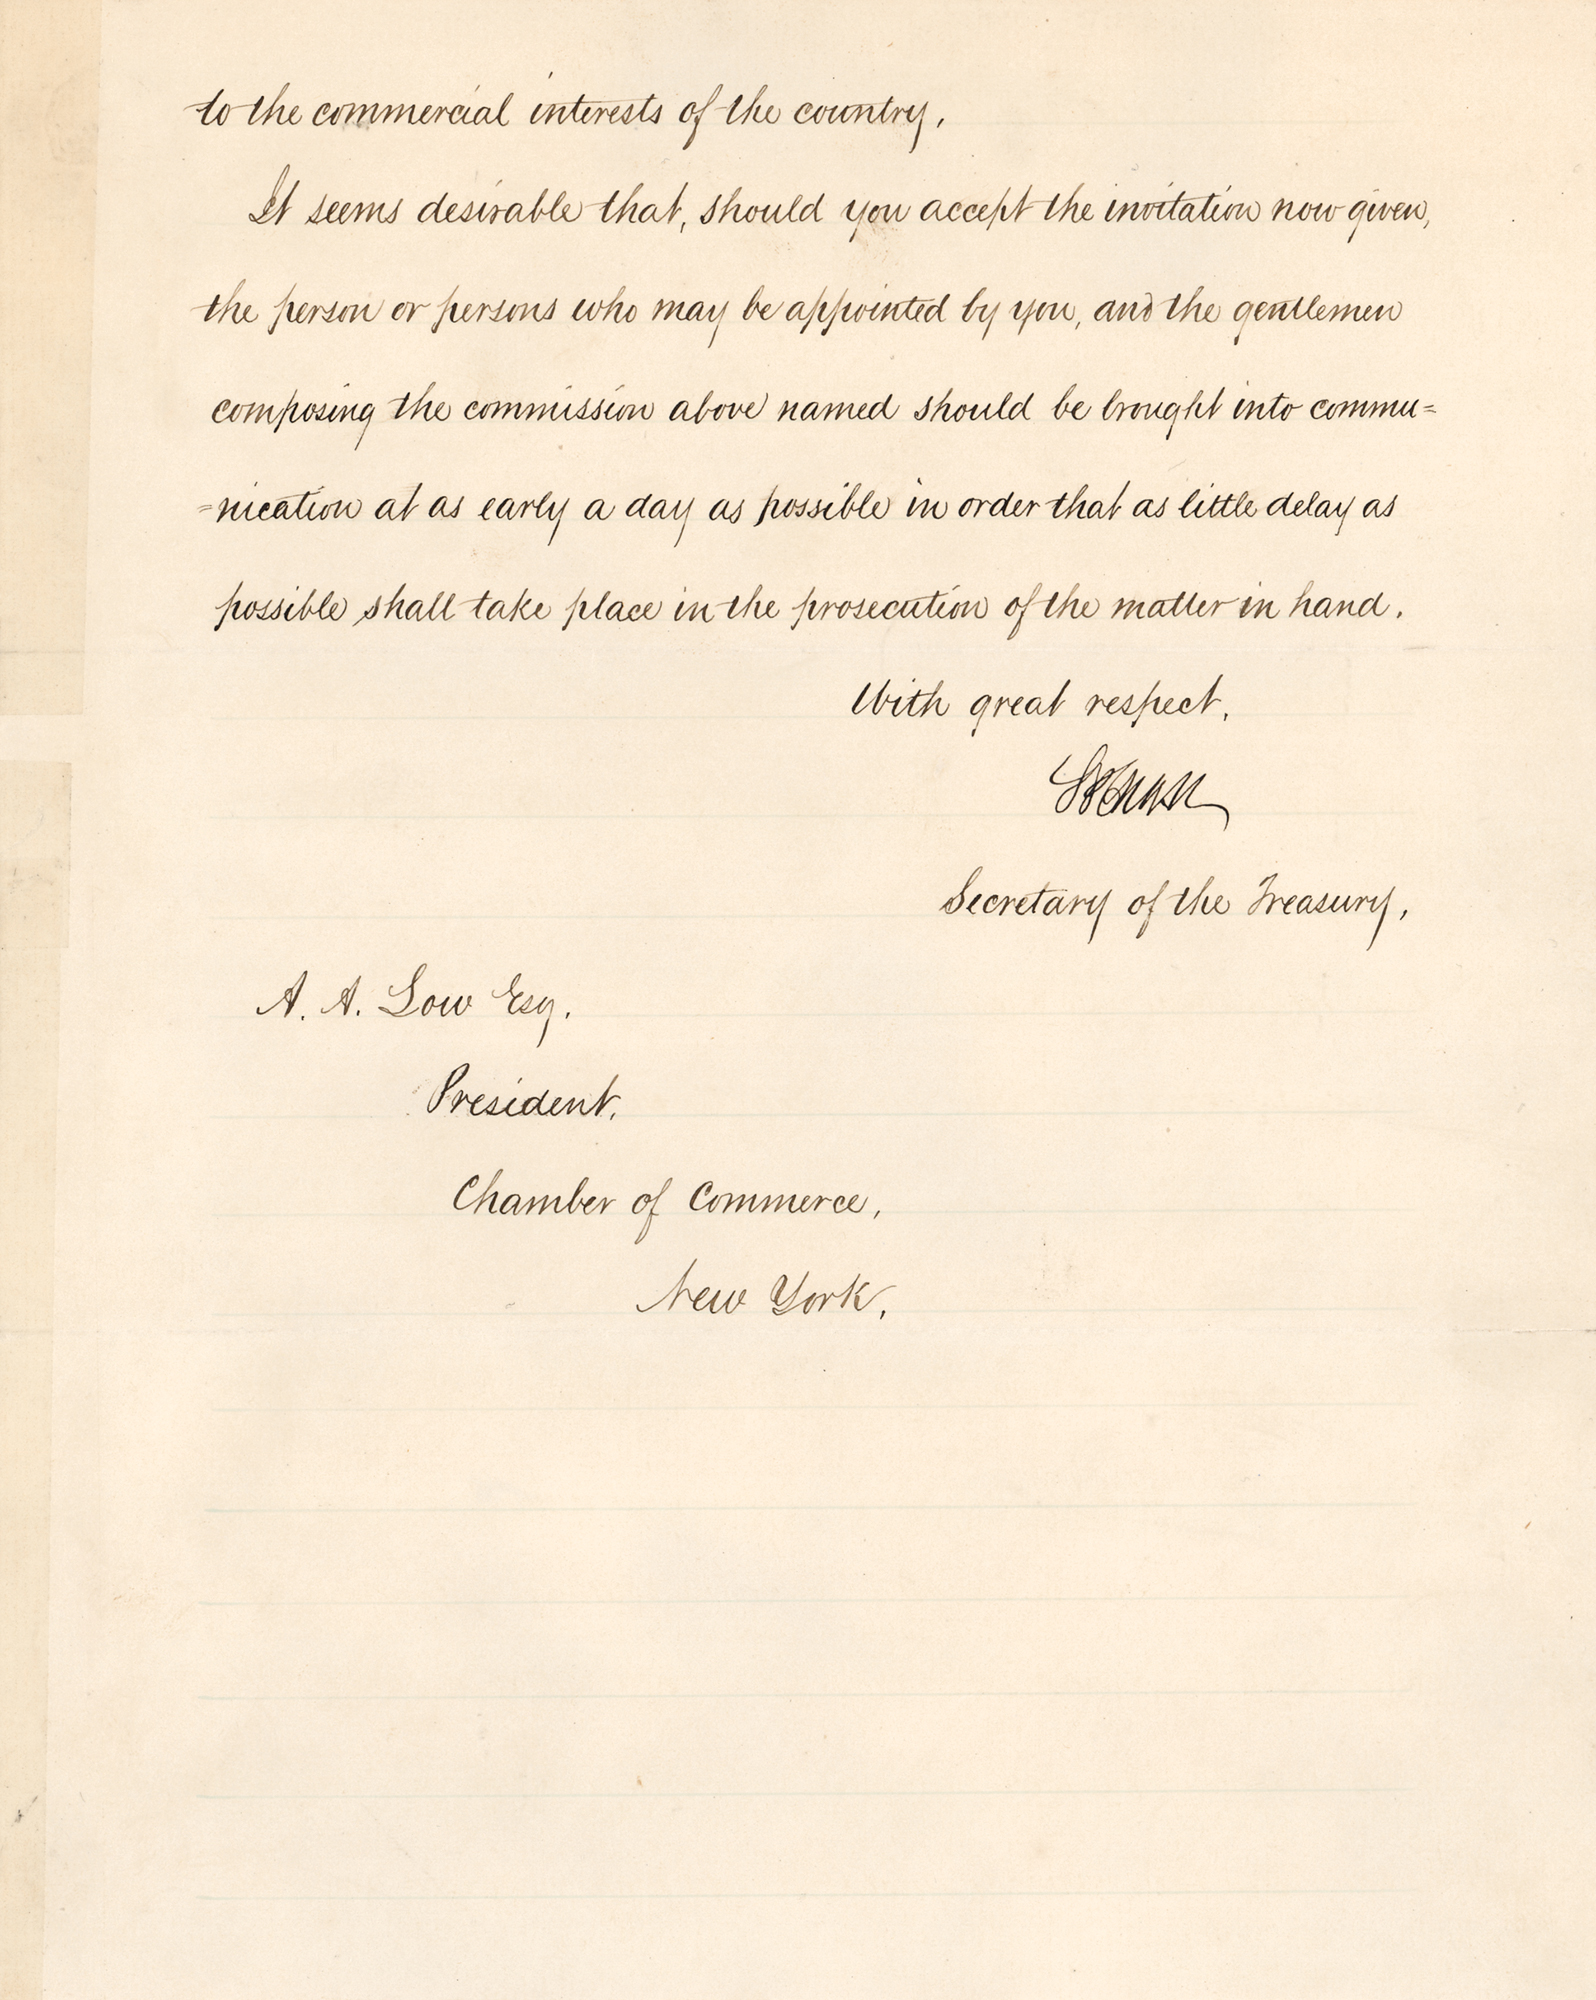 to the commercial interests of the country.
It seems desirable that, should you accept the invitation now given,
the person or persons who may be appointed by you, and the gentlemen
composing the commission above named should be brought into commu=
=nication at as early a day as possible in order that as little delay as
possible shall take place in the prosecution of the matter in hand.
With great respect,
Secretary of the Treasury.
A. A. Low Esq.
President,
Chamber of Commerce,
New York.